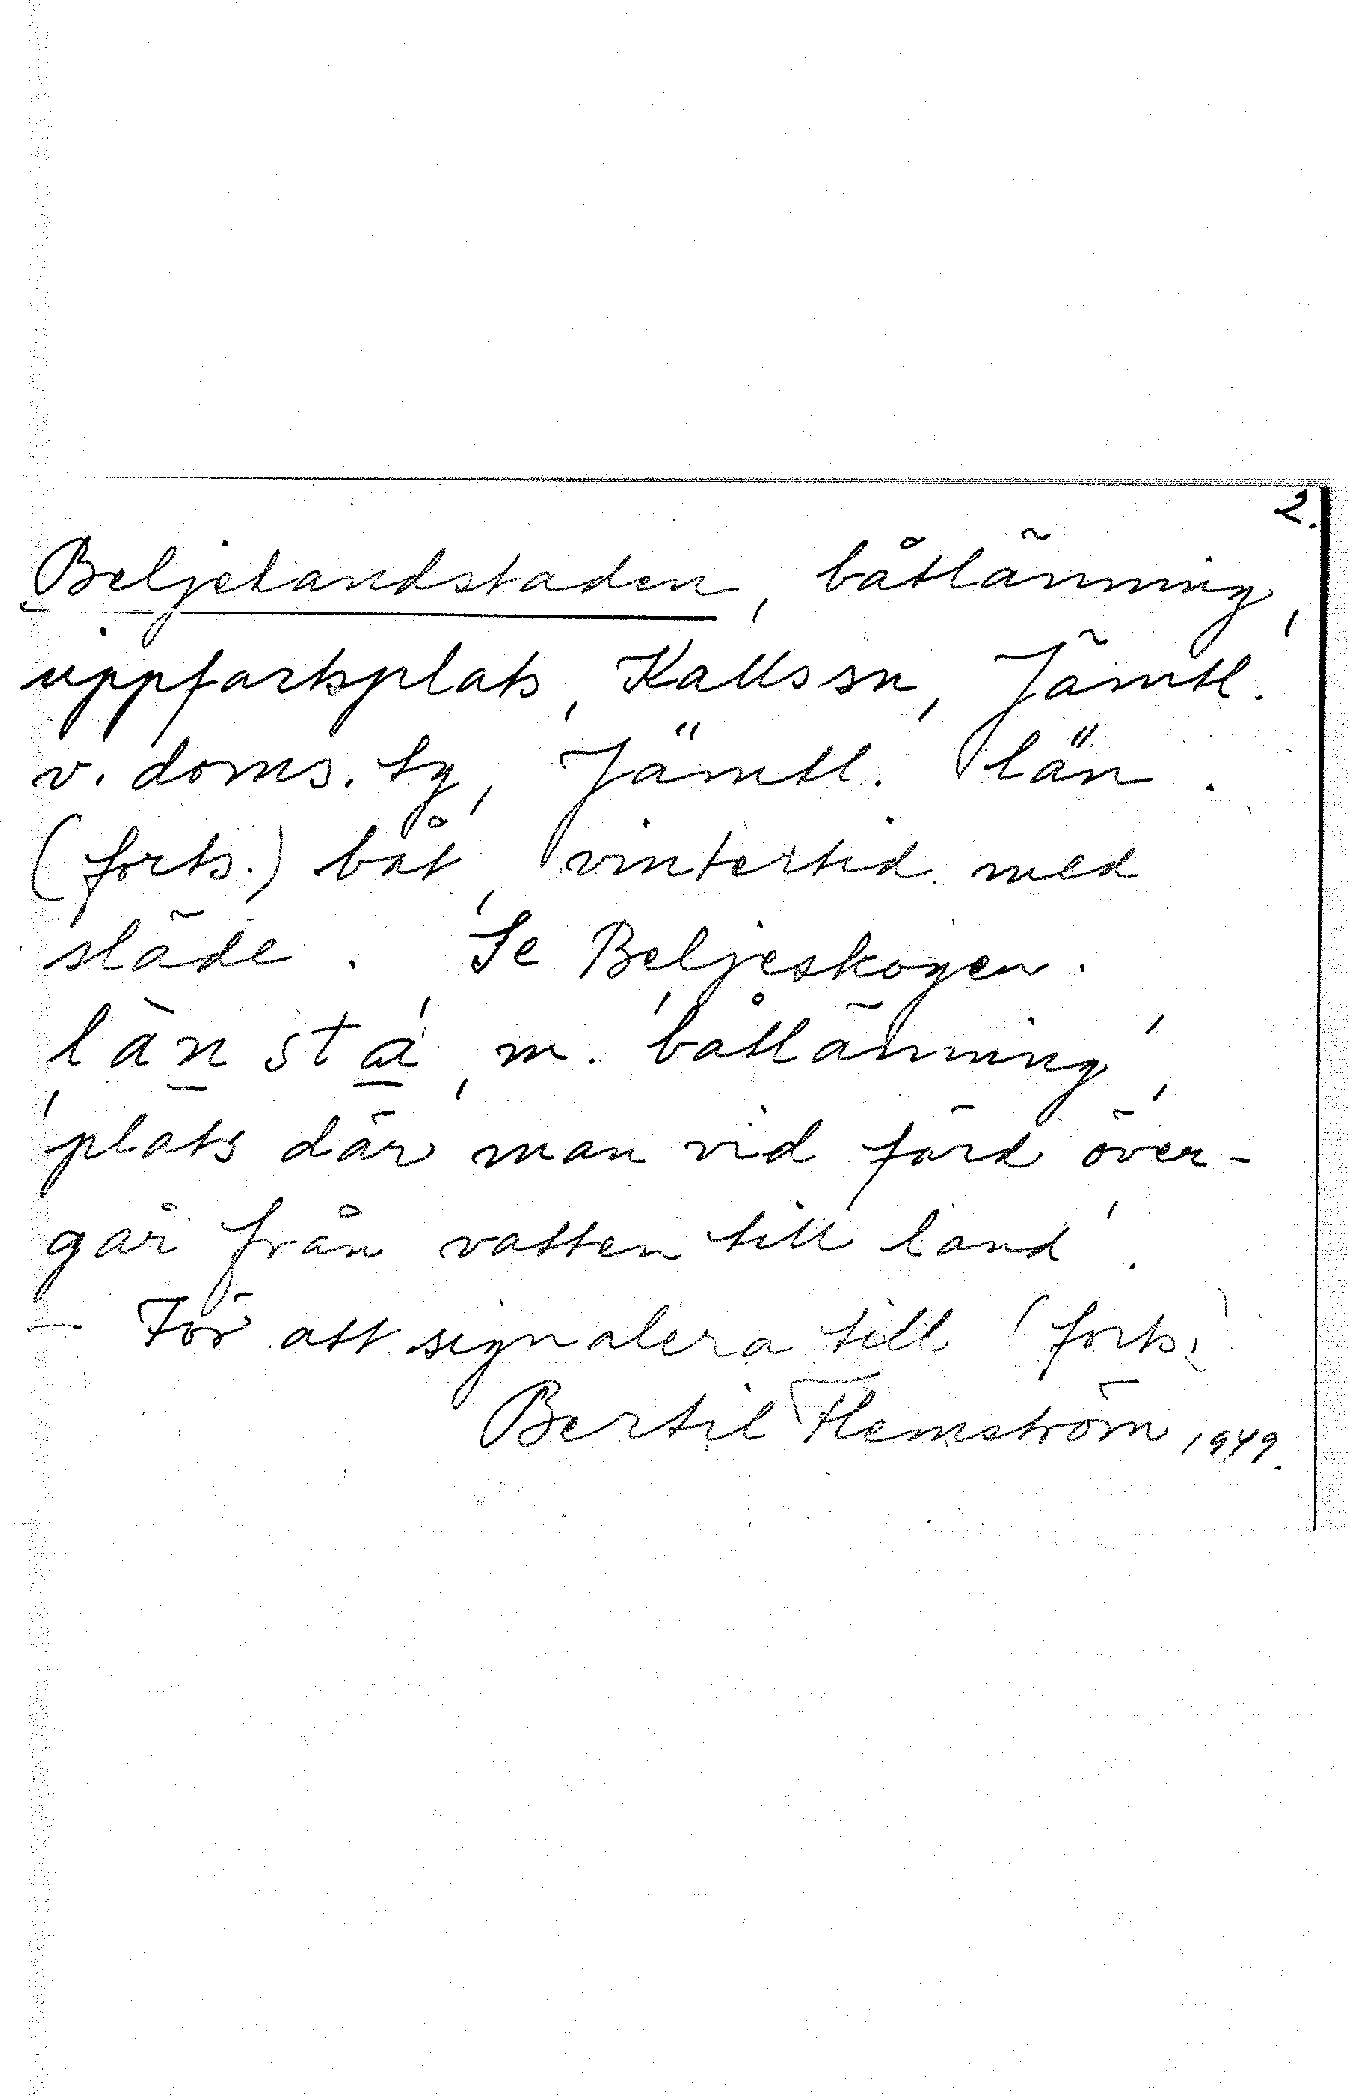 2.
Beljelandstaden, båtlänning,
uppfartsplats, Kalls sn, Jämtl.
v. doms. tg, Jämtl. län.
(forts.) båt, vintertid med
släde. Se Beljeskogen.
län sta, m. 'båtlänning',
'plats där man vid färd över-
går från vatten till land'.
— För att signalera till (forts.)
Bertil Flemström 1949.